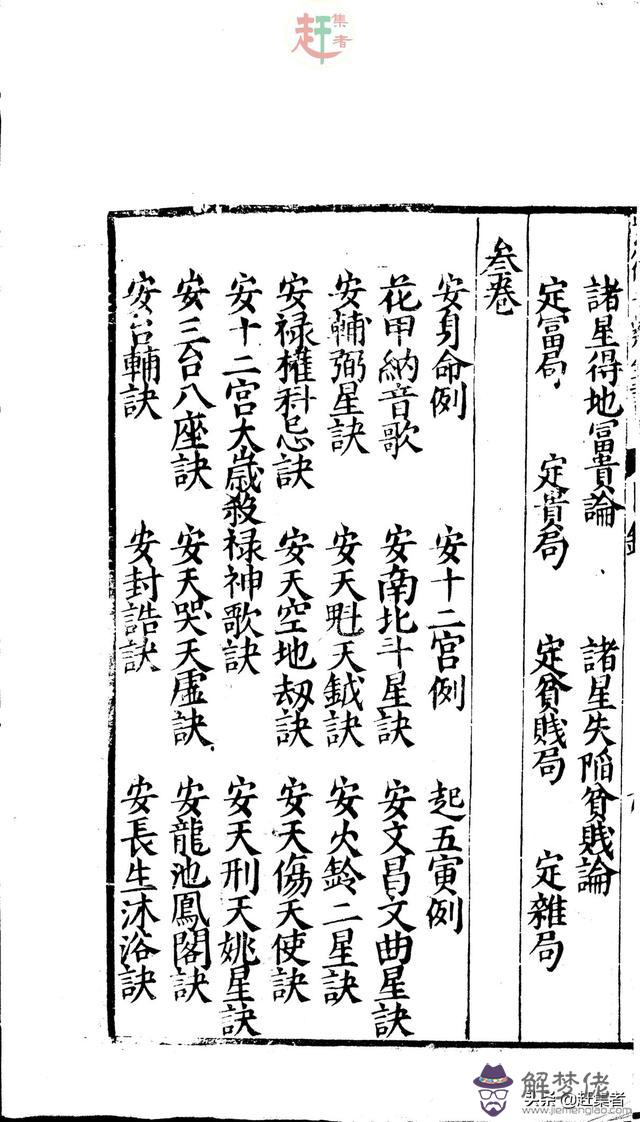 赶集者
諸星得地富貴論　諸星失陷貧賤論
定富局　定貴局　定貧賤局　定雜局
叁卷
安身命例　安十二宮例　起五寅例
花甲納音歌　安南北斗星訣　安文昌文曲星訣
安輔弼星訣　安天魁天鉞訣　安火鈴二星訣
安禄權科忌訣　安天空地刼訣　安天傷天使訣
安十二宮太歲殺禄神歌訣　安天刑天姚星訣
安三台八座訣　安天哭天虛訣　安龍池鳳閣訣
安台輔訣　安封誥訣　安長生沐浴訣
解梦佬
头条@赶集者
www.jiemenglao.com